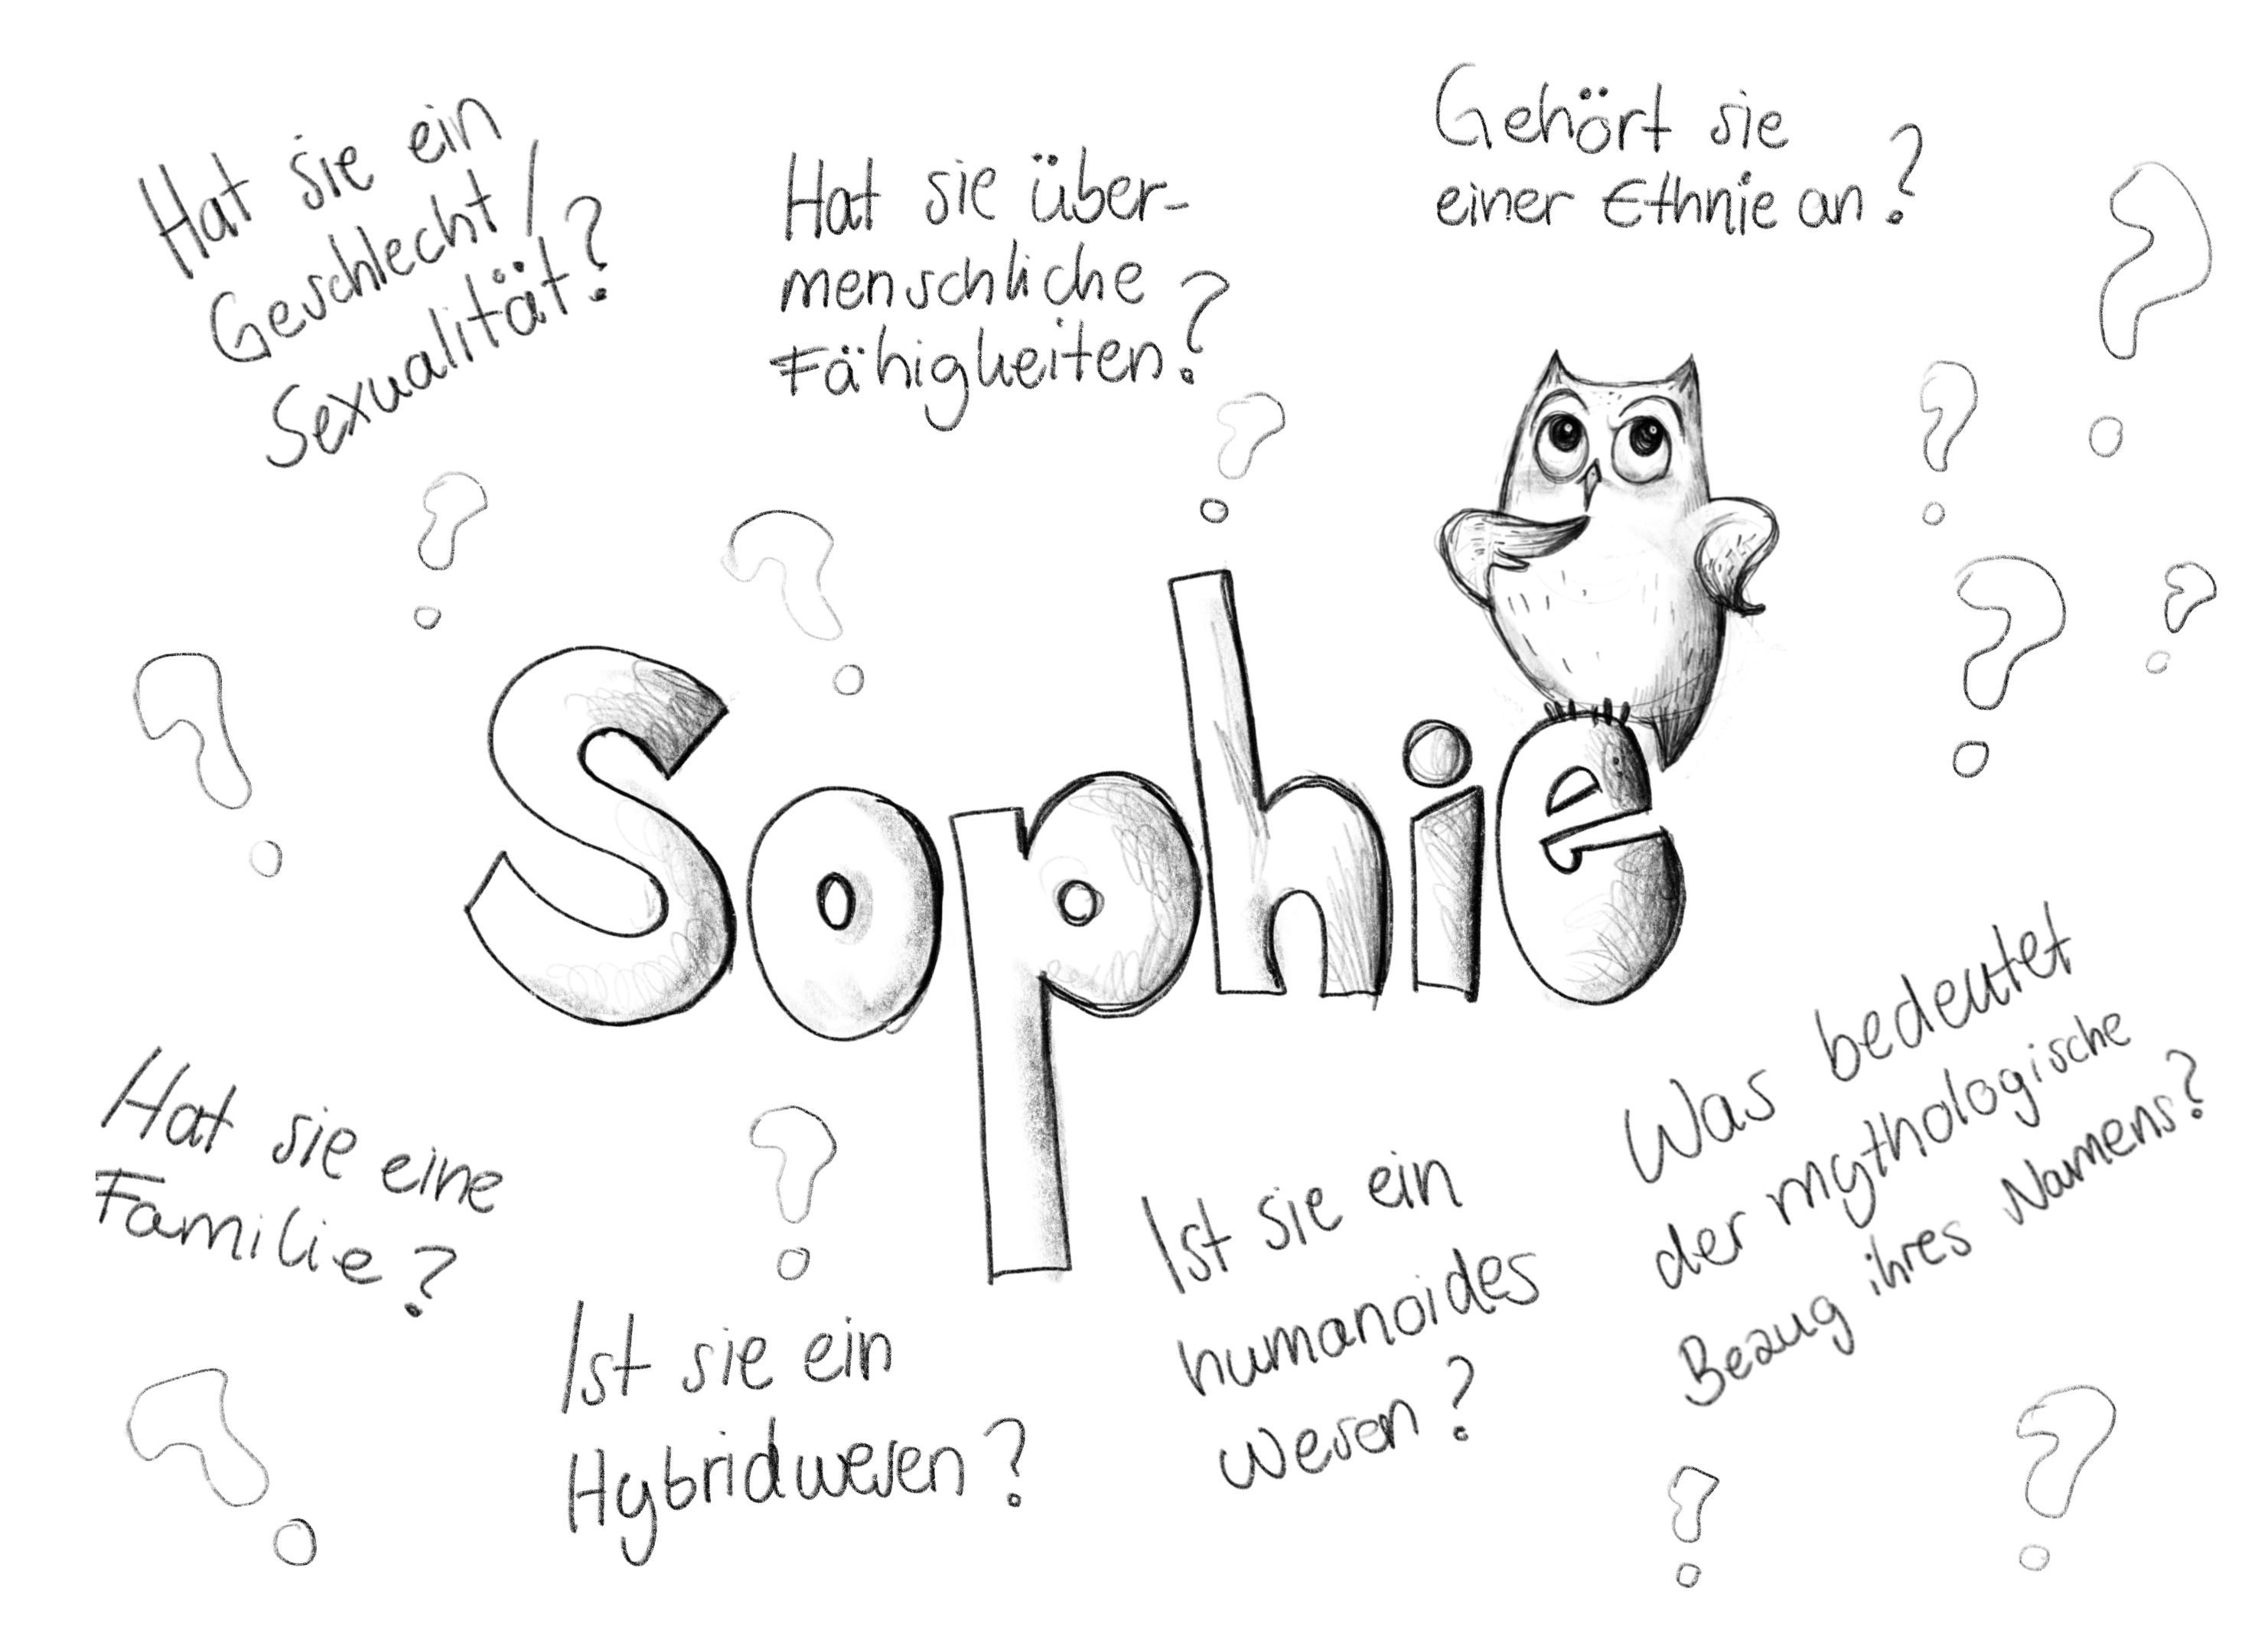 Hat sie ein
Geschlecht/
Sexualität?
Hat sie über-
menschliche
Fähigkeiten?
Gehört sie
einer Ethnie an?
Sophie
Hat sie eine
Familie?
Ist sie ein
Hybridwesen?
Ist sie ein
humanoides
wesen?
Was bedeutet
der mythologische
Bezug ihres Namens?